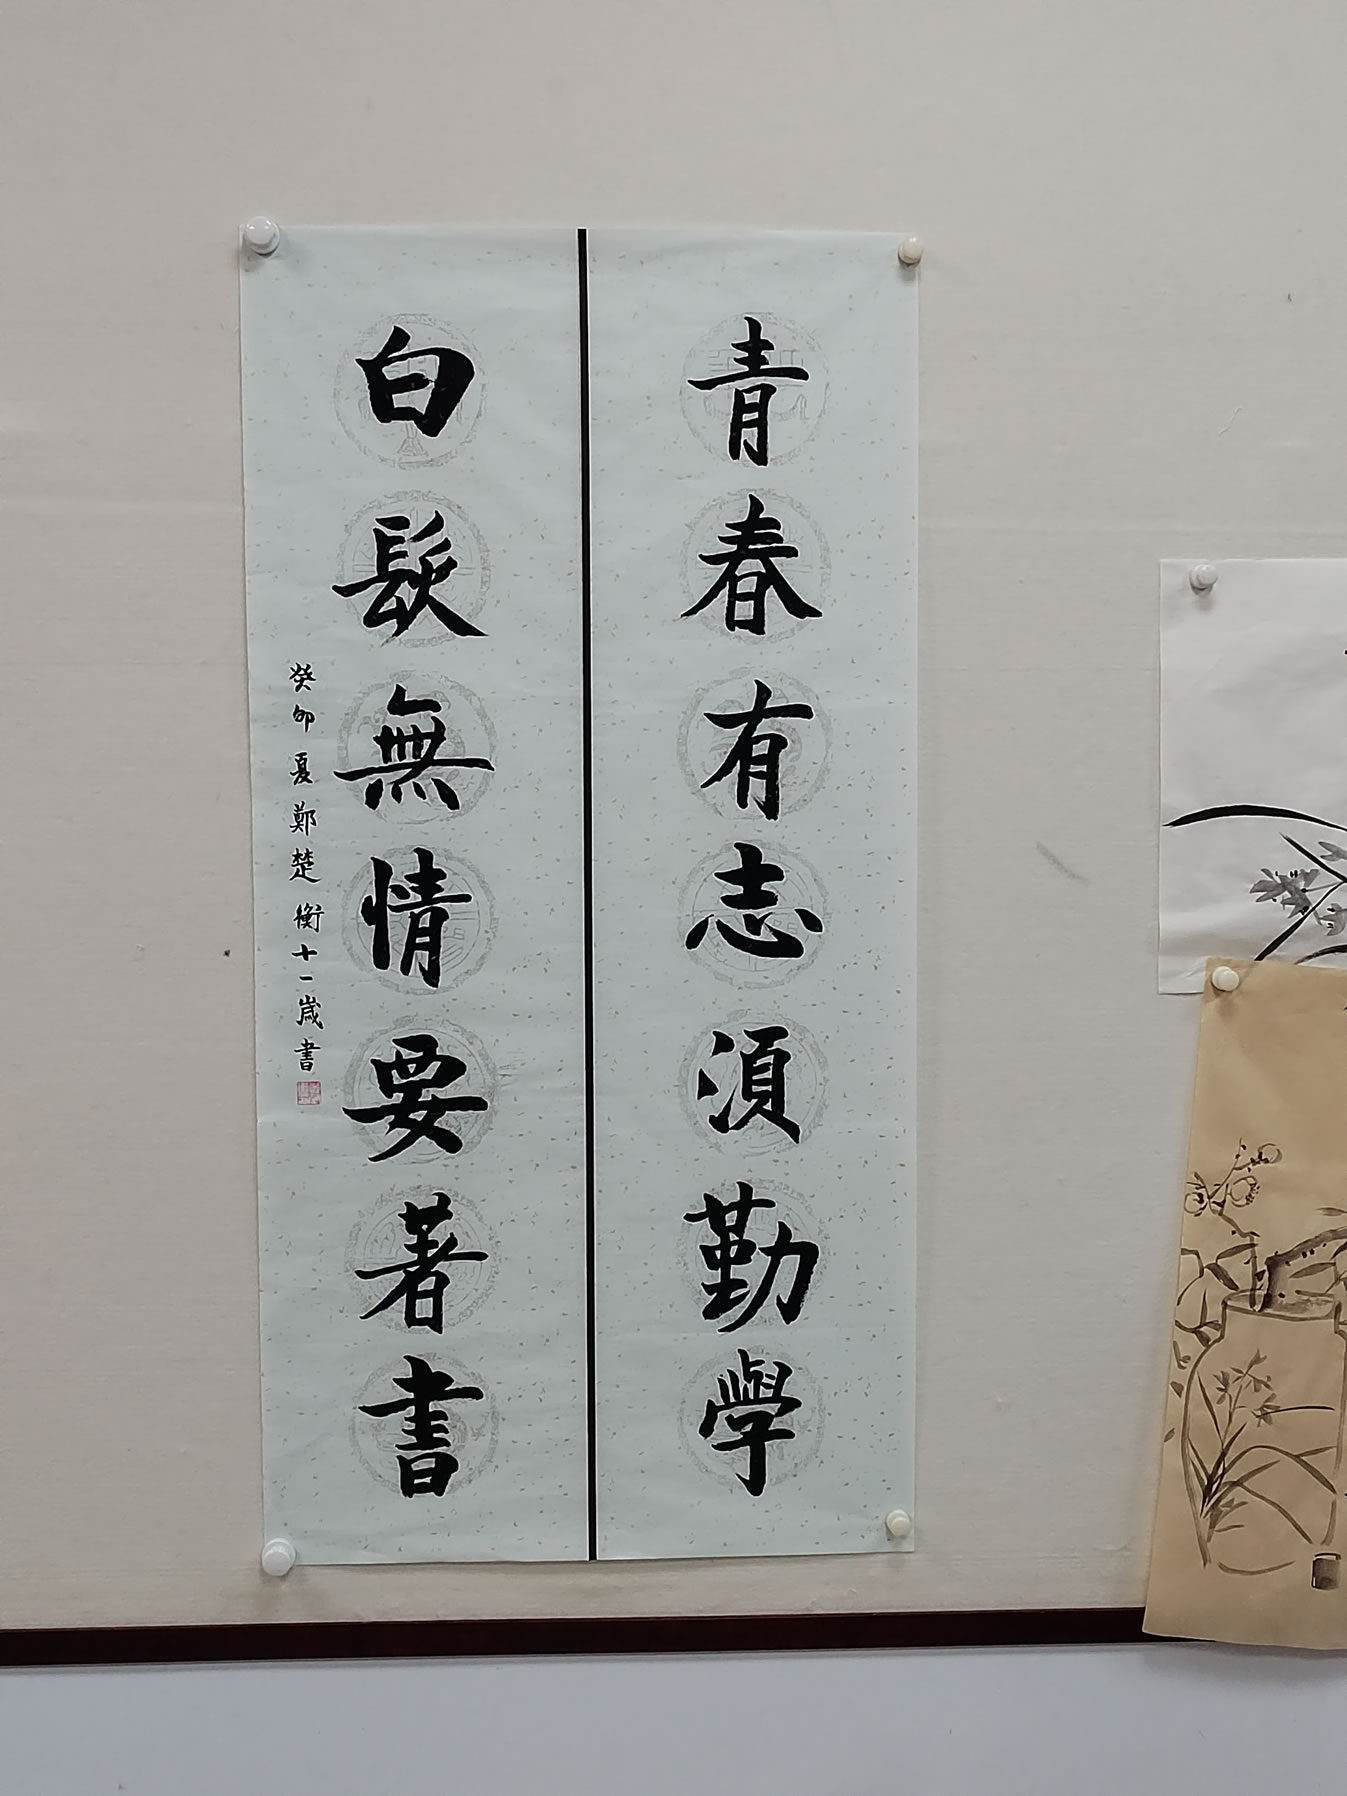 青春有志須勤學
白髮無情要著書
癸卯夏鄭楚衡十一歲書